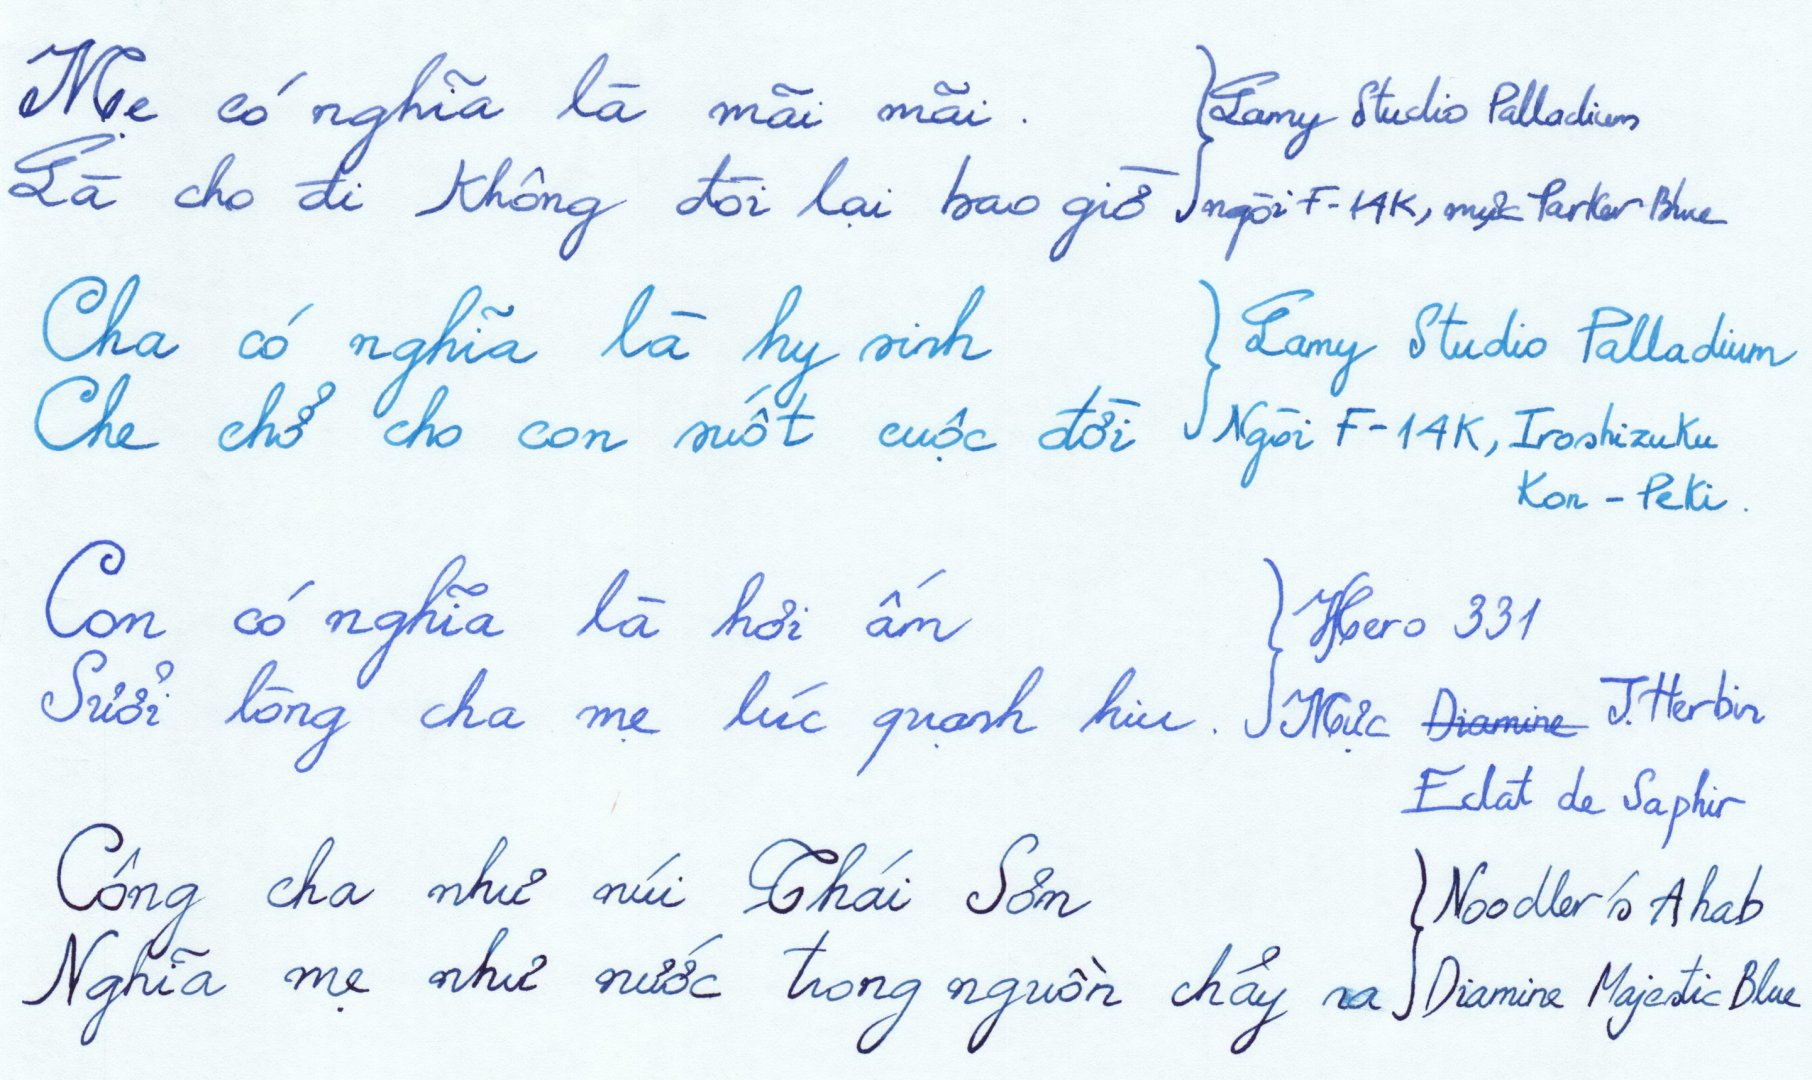 Mẹ có nghĩa là mãi mãi. } Lamy Studio Palladium
Là cho đi không đòi lại bao giờ } ngòi F-14K, mực Parker Blue
Cha có nghĩa là hy sinh } Lamy Studio Palladium
Che chở cho con suốt cuộc đời } Ngòi F-14K, Iroshizuku
Kon-Peki.
Con có nghĩa là hơi ấm } Hero 331
Sưởi lòng cha mẹ lúc quạnh hiu. } Mực Diamine J.Herbin
Eclat de Saphir
Công cha như núi Thái Sơn } Noodler's Ahab
Nghĩa mẹ như nước trong nguồn chảy ra } Diamine Majestic Blue